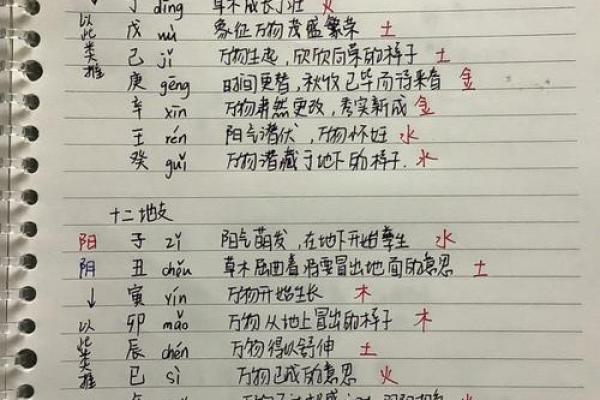 丁 dīng 草木成长丁壮 火
戊 wù 象征万物茂盛繁荣 土
己 jǐ 万物生起,欣欣向荣的样子 土
庚 gēng 时间更替,秋收已毕而待来春 金
辛 xīn 万物肃然更改,秀实新成 金
壬 rén 阳气潜伏,万物怀妊 水
癸 guǐ 万物潜藏于地下的样子. 水
以此类推
十二地支
阳 子 zǐ 阳气萌发,在地下开始孳生 水
阴 丑 chǒu 草木屈曲着将要冒出地面的意思 土
↓ 寅 yín 万物开始生长 木
卯 mǎo 万物从地上冒出的样子 木
辰 chén 万物得以舒伸 土
巳 sì 万物已成的意思 火
以此类推